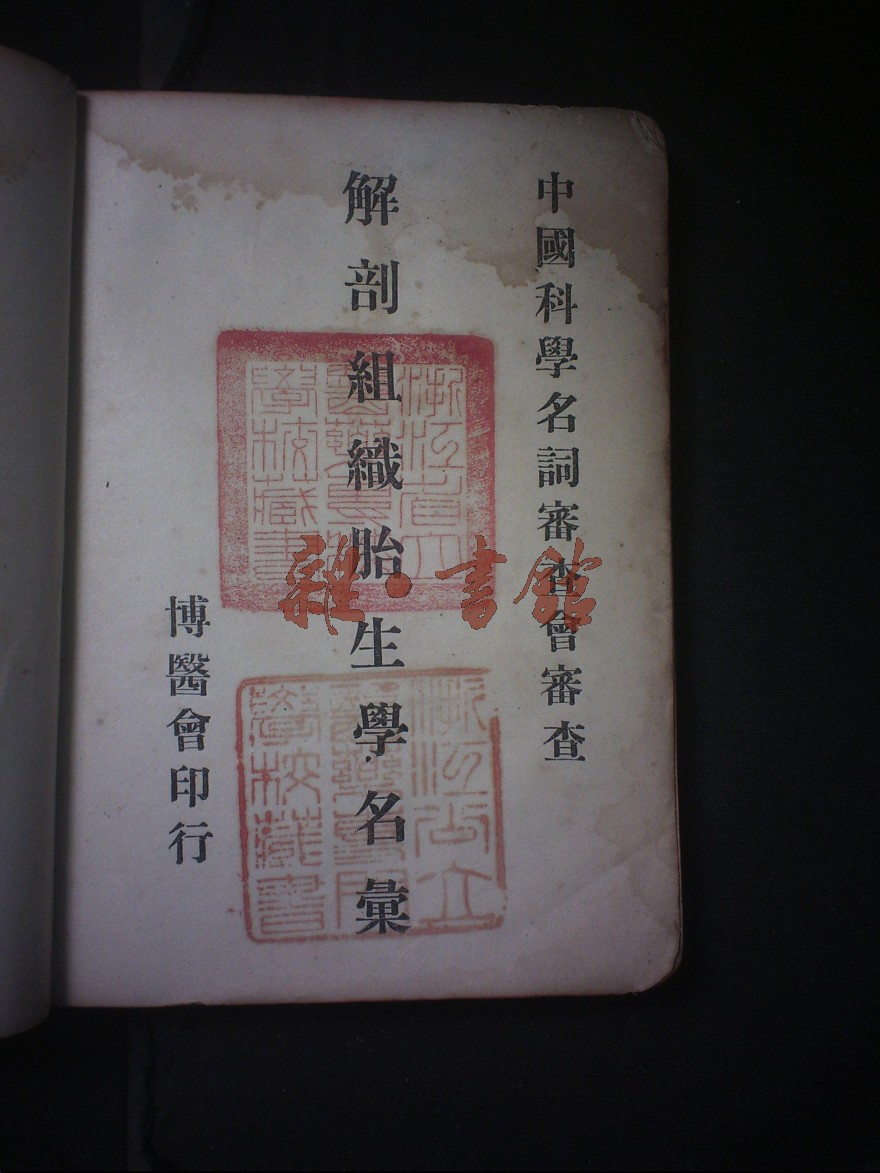 中國科學名詞審查會審查
解剖組織胎生學名彙
博醫會印行
浙江省立
醫藥專
學校藏書
浙江公立
醫藥專門
學校藏書
雜·書館